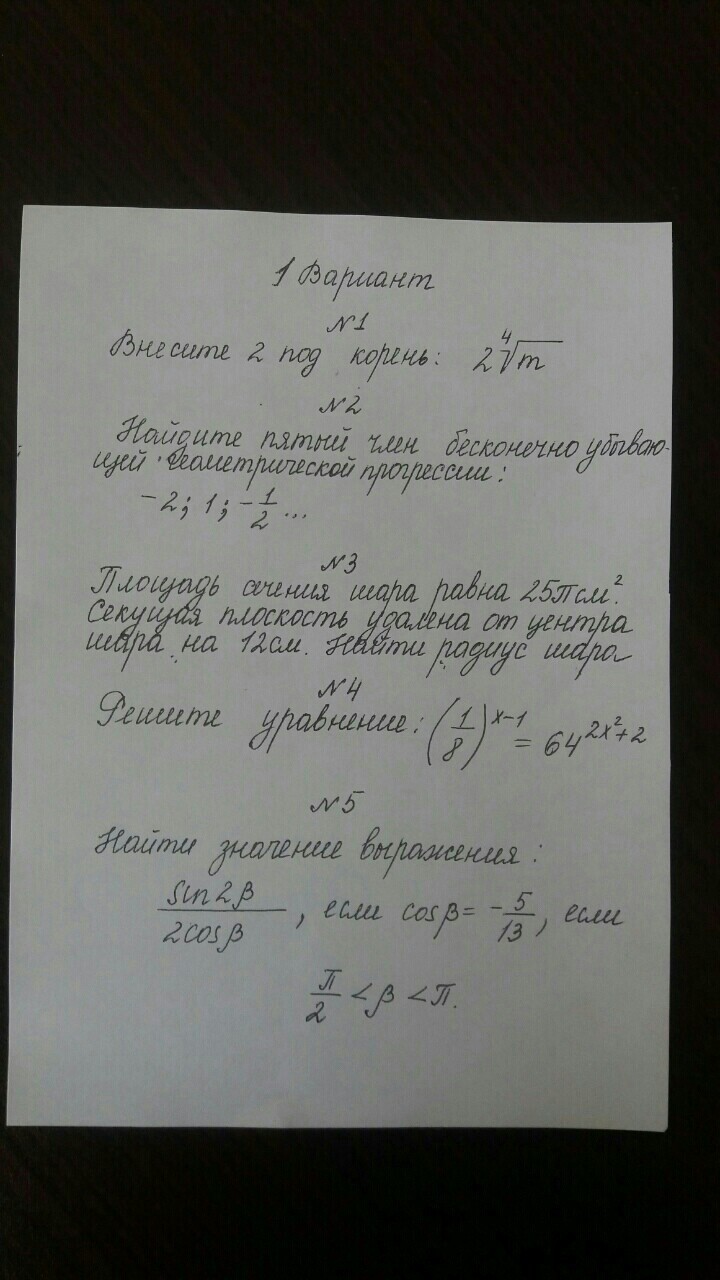 1 Вариант
№1
Внесите 2 под корень: 2∜m
№2
Найдите пятый член бесконечно убываю-
щей геометрической прогрессии:
-2; 1; -1/2 ...
№3
Площадь сечения шара равна 25π см².
Секущая плоскость удалена от центра
шара на 12см. Найти радиус шара
№4
Решите уравнение: (1/8)^(x-1) = 64^(2x²+2)
№5
Найти значение выражения:
sin2β/2cosβ, если cosβ = -5/13, если
π/2 < β < π.